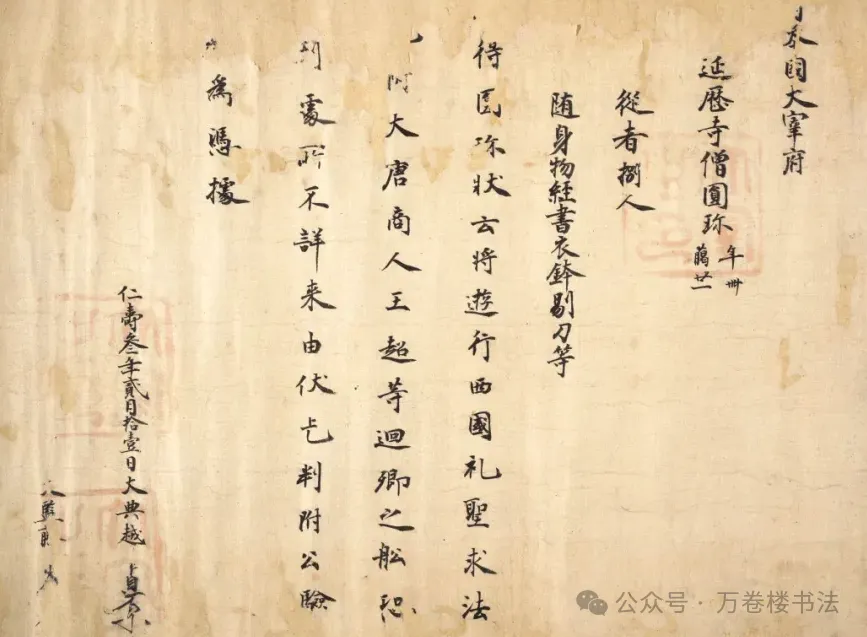 日本國大宰府
延暦寺僧圓珍 年卌 﨟廿一
從者捌人
随身物経書衣鉢剔刀等
得圓珎状云将遊行西國礼聖求法
附大唐商人王超等迴鄉之舩恐
到處所不詳来由伏乞判附公驗
為憑據
仁壽叁年貳月拾壹日大典越貞原
大監藤
公众号·万卷楼书法